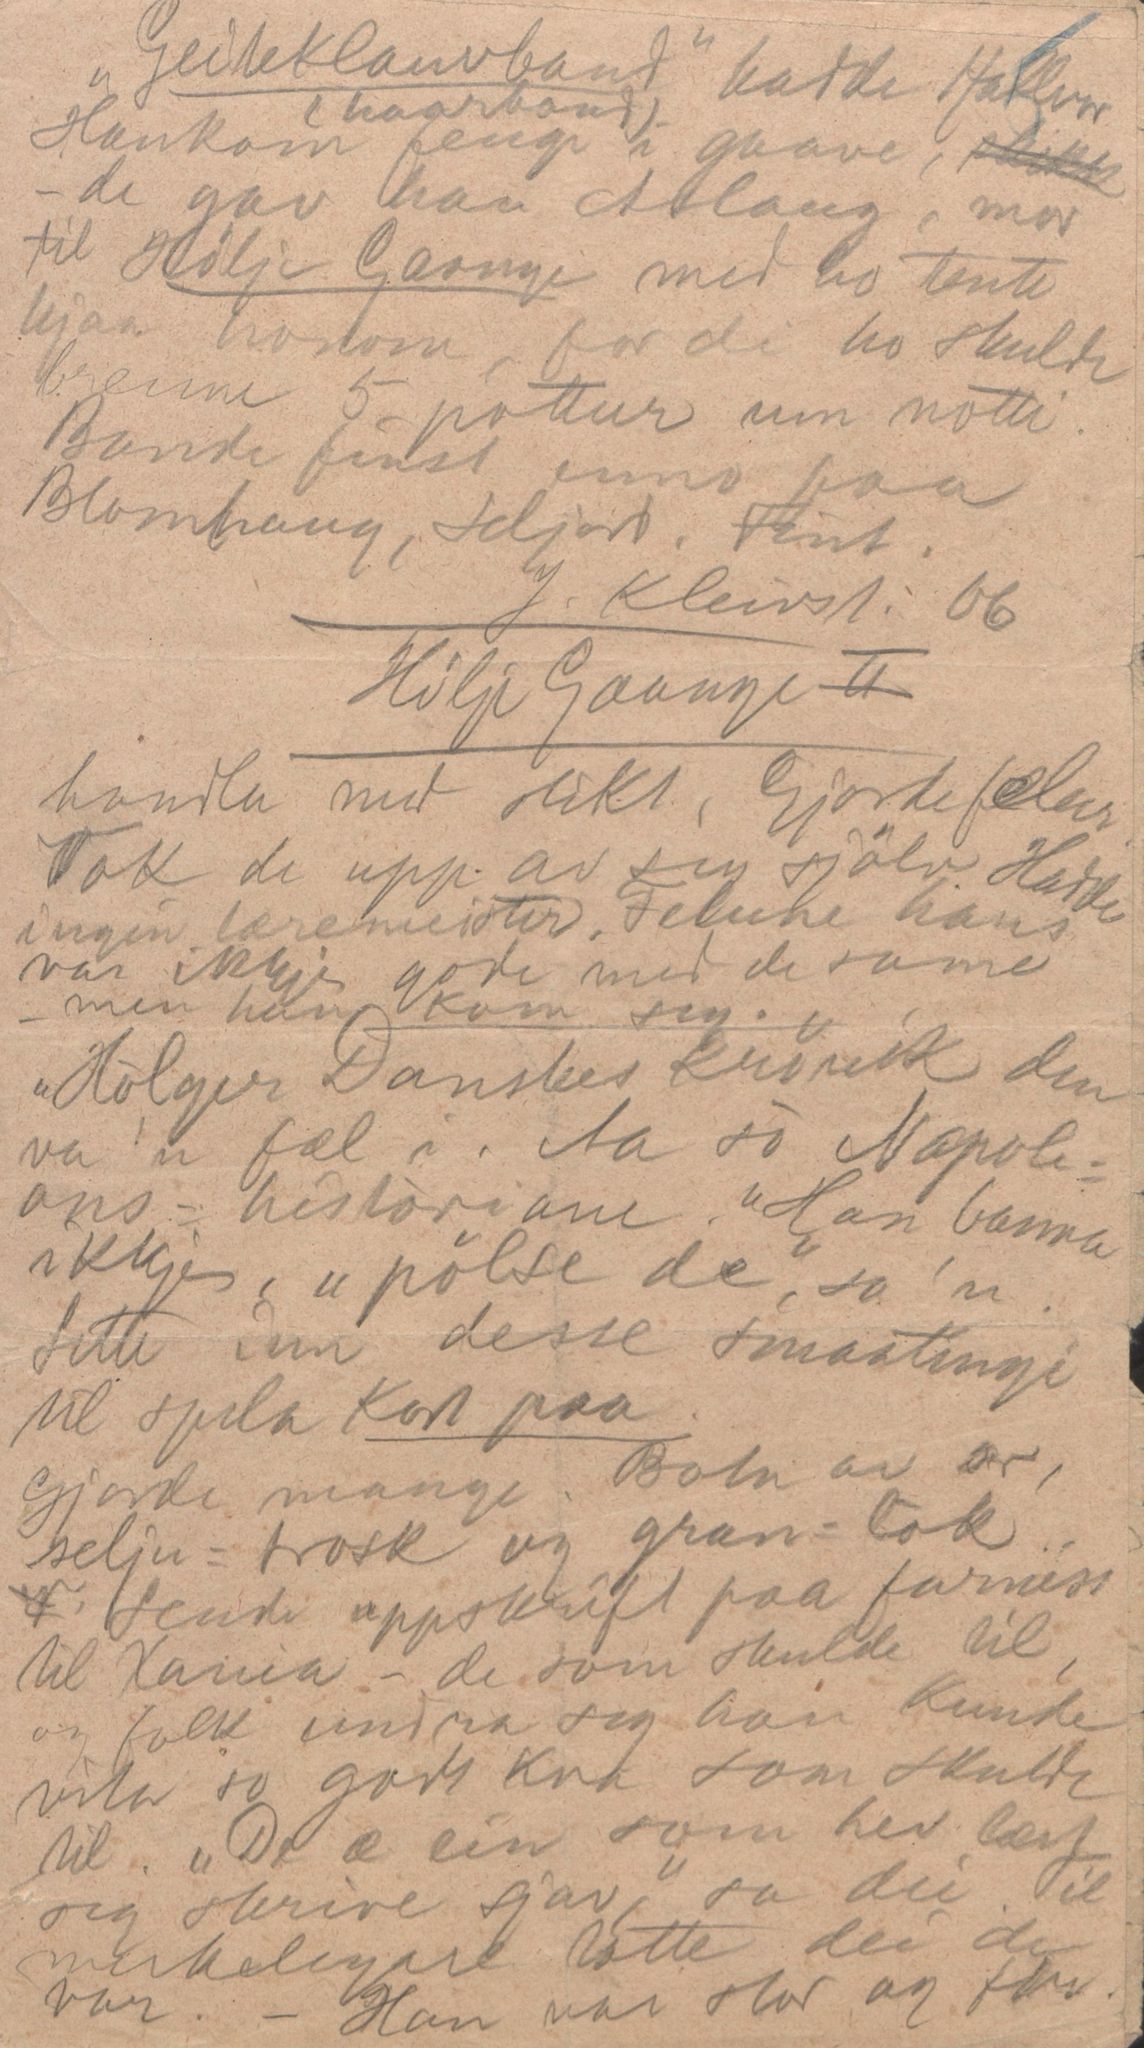 "Geiteklauvband" hadde Hallvor
(haarband)
Haukom fenge i gaave,
- de gav han Aslaug, mor
til Hölje Gaunge med ho tente
hjaa honom, for di ho skulde
brenne 5 pottur um notti.
Bande finst enno paa
Blomhaug, Seljord. Fint.
J. Kleivst. 06
Hölje Gaunge II
handla med slikt, Gjorde felur
Tok de upp av seg sjölv Hadde
ingin læremeister. Felune hans
var ikkje gode med de same
- men han kom seg.
"Hölger Danskes krönik" den
va 'n fæl i. Aa so Napole=
ons=historiane. "Han banna
ikkje, "pölse de", sa 'n.
Sette inn desse smaatingi
til spela kort paa.
Gjorde mange. Botn av or,
selju= trosk og gran= lok.
Sende uppskrift paa farniss
til Xania - de som skulde til,
og folk undra seg han kunde
vita so godt kva som skulde
til. "De æ ein som hev lært
seg skrive sjav," sa dei. Til
merkelegare totte dei de
var. - Han var stor og før.